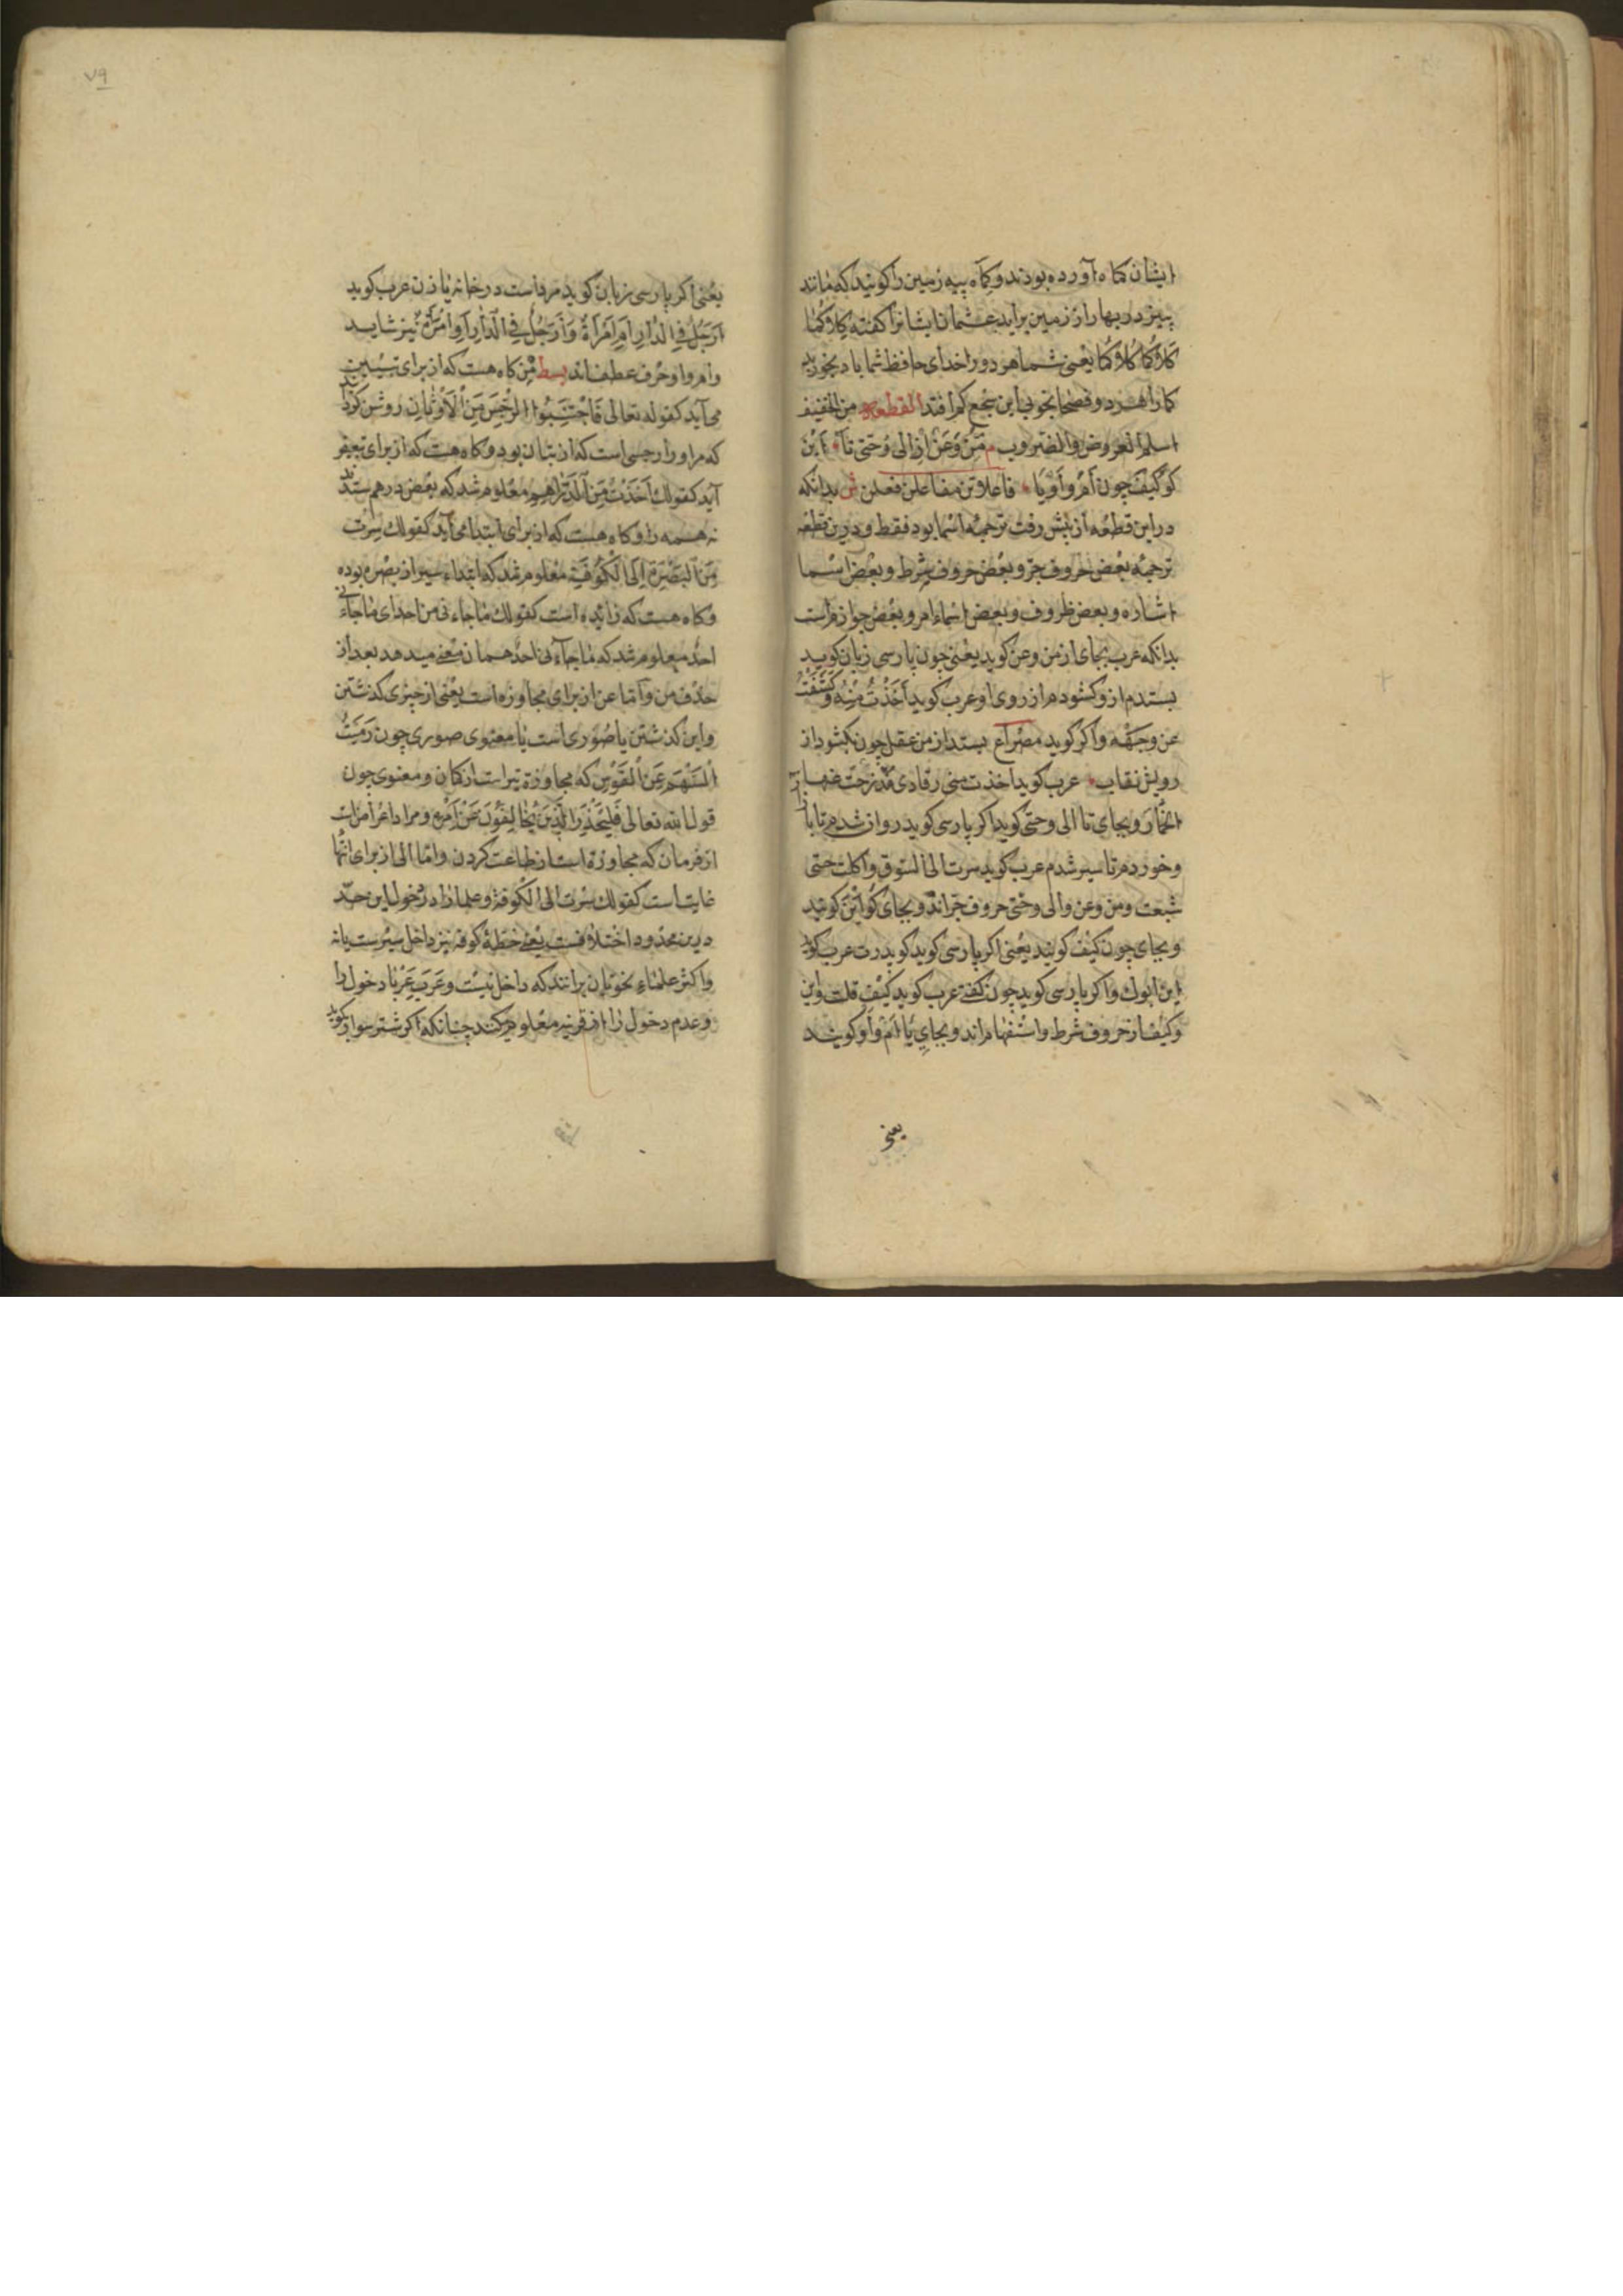 ایشان کماه آورده بودند و کماه پیه زمین را گویند که مانند
پنیر در بهار از زمین براید عثمان ایشانرا گفته کِلاکُما
کَلاؤُکُما کَلاؤُکُما یعنی شما هر دو را خدای حافظ شما باد بخورید
کما را هر دو فصحا بخوبی این سجع کم افتد القطعه من الخفیف
اسلم العروض والضروب م مِنْ وَعَنْ از الی وَحتی تا اَیْنَ
کو کَیْفَ چون اَمْ وَ اَوْ یا فاعلاتن مفاعلن فعلن ش بدانکه
در این قطعه از پیش رفت ترجمهٔ اسما بود فقط و درین قطعه
ترجمهٔ بعض حروف جرّ و بعض حروف شرط و بعض اسما
اشاره و بعض ظروف و بعض اسماء امر و بعض جوازم است
بدانکه عرب بجای از من و عن گوید یعنی چون پارسی زبان گوید
بستدم از و گشودم از روی او عرب گوید اَخَذْتُ مِنْهُ وَ کَشَفْتُ
عن وجهه و اگر گوید مصراع بستد از من عقل چون بگشود از
رویش نقاب عرب گوید اخذت منی رقادی مُذْ نزحت
الخِمار و بجای تا الی و حتی گوید اگر پارسی گوید روان شدم تا بازار
و خوردم تا سیر شدم عرب گوید سرت الی السوق و اکلت حتی
شبعت و من و عن و الی و حتی حروف جرّاند و بجای کو اَیْنَ گویند
و بجای چون کَیْفَ گویند یعنی اگر پارسی گوید کو پدرت عرب گوید
این ابوک و اگر پارسی گوید چون گفتی عرب گوید کَیْفَ قلت و این
و کیف از حروف شرط و استفهام اند و بجای یا اَمْ و اَو گویند
یعنی
٧٩
یعنی اگر پارسی زبان گوید مرد است در خانه یا زن عرب گوید
اَرَجُلٌ فِی الدّارِ اَمِ امْرَأَةٌ وَ اَرَجُلٌ فِی الدّارِ اَوِ امْرَأَةٌ نیز شاید
و ام و او حرف عطف اند بسط مِنْ گاه هست که از برای تبیین
می آید کقوله تعالی فَاجْتَنِبُوا الرِّجْسَ مِنَ الْاَوْثَانِ روشن کرد
که مراد را رجسی است که از بتان بود و گاه هست که از برای تبعیض
آید کقولک اَخَذْتُ مِنَ الدَّرَاهِمِ معلوم شد که بعض درهم ستد
نه همه را و گاه هست که از برای ابتدا می آید کقولک سِرْتُ
مِنَ الْبَصْرَةِ اِلَی الْکُوفَةِ معلوم شد که ابتداء سیر از بصره بوده
و گاه هست که زائده است کقولک ما جاءنی من احد ای ما جاءنی
احدٌ معلوم شد که ما جاءنی احدٌ همان معنی میدهد بعد از
حذف من و اما عن از برای مجاوزه است یعنی از چیزی گذشتن
و این گذشتن یا صوری است یا معنوی صوری چون رَمَیْتُ
السَّهْمَ عَنِ الْقَوْسِ که مجاوزة تیر است از کمان و معنوی چون
قول الله تعالی فَلْیَحْذَرِ الَّذِینَ یُخَالِفُونَ عَنْ اَمْرِهِ و مراد اعراض است
از فرمان که مجاوزه است از طاعت کردن و اما الی از برای انتها
غایت است کقولک سِرْت الی الکوفة و علما را در دخول این حدّ
درین محدود اختلافست یعنی خطهٔ کوفه نیز داخل سیرست یا نه
و اکثر علماء نحو بر انند که داخل نیست و عَرَبِ عَرْبا دخول را
و عدم دخول را از قرینه معلوم کنند چنانکه اگر شتر سوار گوید